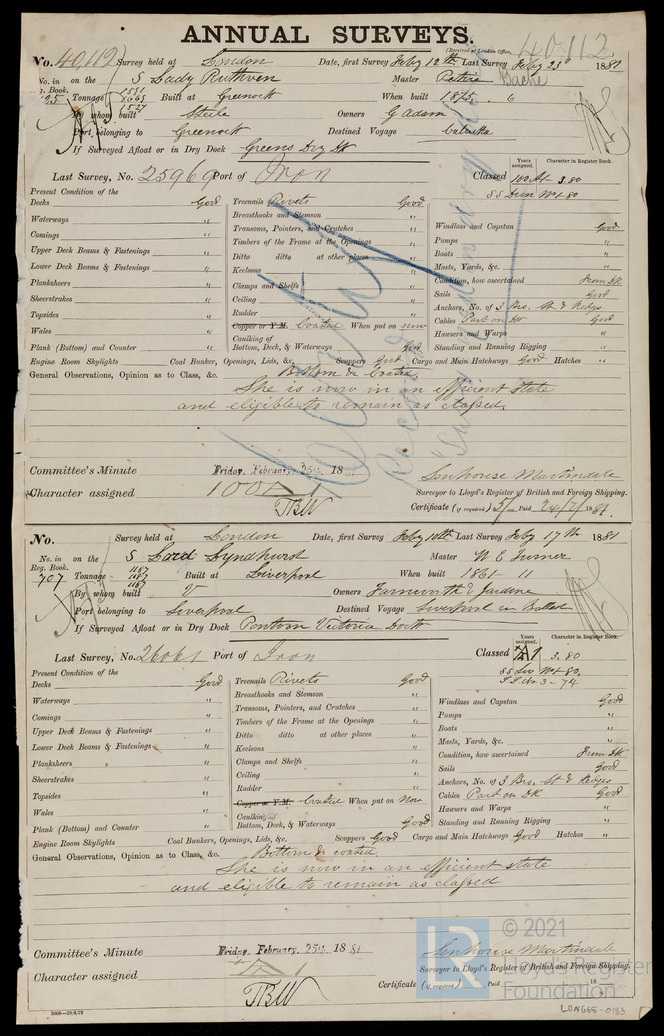 ANNUAL SURVEYS.
(Received at London Office,
40112
No. 40,112 Survey held at London Date, first Survey Feby 12th Last Survey Feby 23d 1881
No. in on the S Lady Ruthven Master Petrie Bache
Reg. Book. 1591
Tonnage 1665 Built at Greenock When built 1875. 6
1527
By whom built Steele Owners G Adam
Port belonging to Greenock Destined Voyage Calcutta
If Surveyed Afloat or in Dry Dock Greens Dry Dk
Years assigned. Character in Register Book.
Last Survey, No. 25969 Port of Iron Classed 100A1 3.80
Present Condition of the
Decks Good Treenails Rivets Good
Waterways " Breasthooks and Stemson " Windlass and Capstan Good
Comings " Transoms, Pointers, and Crutches " Pumps "
Upper Deck Beams & Fastenings " Timbers of the Frame at the Openings " Boats "
Lower Deck Beams & Fastenings " Ditto ditto at other places " Masts, Yards, &c. "
Planksheers " Keelsons " Condition, how ascertained From DK
Sheerstrakes " Clamps and Shelfs " Sails Good
Topsides " Ceiling " Anchors, No. of 3 Brs. St & Kedges
Wales " Rudder " Cables Part on DK Good
Copper or Y.M. Coated When put on now Hawsers and Warps "
Plank (Bottom) and Counter " Caulking of Bottom, Deck, & Waterways Good Standing and Running Rigging "
Engine Room Skylights Coal Bunker, Openings, Lids, &c. Scuppers Good Cargo and Main Hatchways Good Hatches "
General Observations, Opinion as to Class, &c. Bottom & Coated
She is now in an efficient state
and eligible to remain as classed,
Committee's Minute Friday, February, 25th, 1881
Senhouse Martindale
Character assigned 100A1 Surveyor to Lloyd's Register of British and Foreign Shipping.
TBW Certificate (if required) 5/- Paid 1881.
No. Survey held at London Date, first Survey Feby 10th Last Survey Feby 17th 1881
No. in on the S Lord Lyndhurst Master W E Turner
Reg. Book. 1187
707 Tonnage 1187 Built at Liverpool When built 1861 11
1187
By whom built V Owners Farnworth & Jardine
Port belonging to Liverpool Destined Voyage Liverpool in Ballast
If Surveyed Afloat or in Dry Dock Pontoon Victoria Dock
Years assigned. Character in Register Book.
Last Survey, No. 26061 Port of Iron Classed A1 3.80
Present Condition of the
Decks Good Treenails Rivets Good
Waterways " Breasthooks and Stemson Windlass and Capstan Good
Comings " Transoms, Pointers, and Crutches Pumps "
Upper Deck Beams & Fastenings " Timbers of the Frame at the Openings " Boats "
Lower Deck Beams & Fastenings " Ditto ditto at other places " Masts, Yards, &c. "
Planksheers " Keelsons Condition, how ascertained From DK
Sheerstrakes " Clamps and Shelfs Sails Good
Topsides " Ceiling Anchors, No. of 3 Brs. St & Kedges
Wales " Rudder Cables Part on DK Good
Copper or Y.M. Coated When put on Now Hawsers and Warps "
Plank (Bottom) and Counter " Caulking of Bottom, Deck, & Waterways Good Standing and Running Rigging "
Engine Room Skylights Coal Bunkers, Openings, Lids, &c. Scuppers Good Cargo and Main Hatchways Good Hatches "
General Observations, Opinion as to Class, &c. Bottom & coated
She is now in an efficient state
and eligible to remain as classed
Committee's Minute Friday, February, 25th, 1881
Senhouse Martindale
Character assigned A1 Surveyor to Lloyd's Register of British and Foreign Shipping.
TBW Certificate (if required) Paid 18
2000—29/4/79
© 2021
LR Lloyd's Register
Foundation
LON665-0183